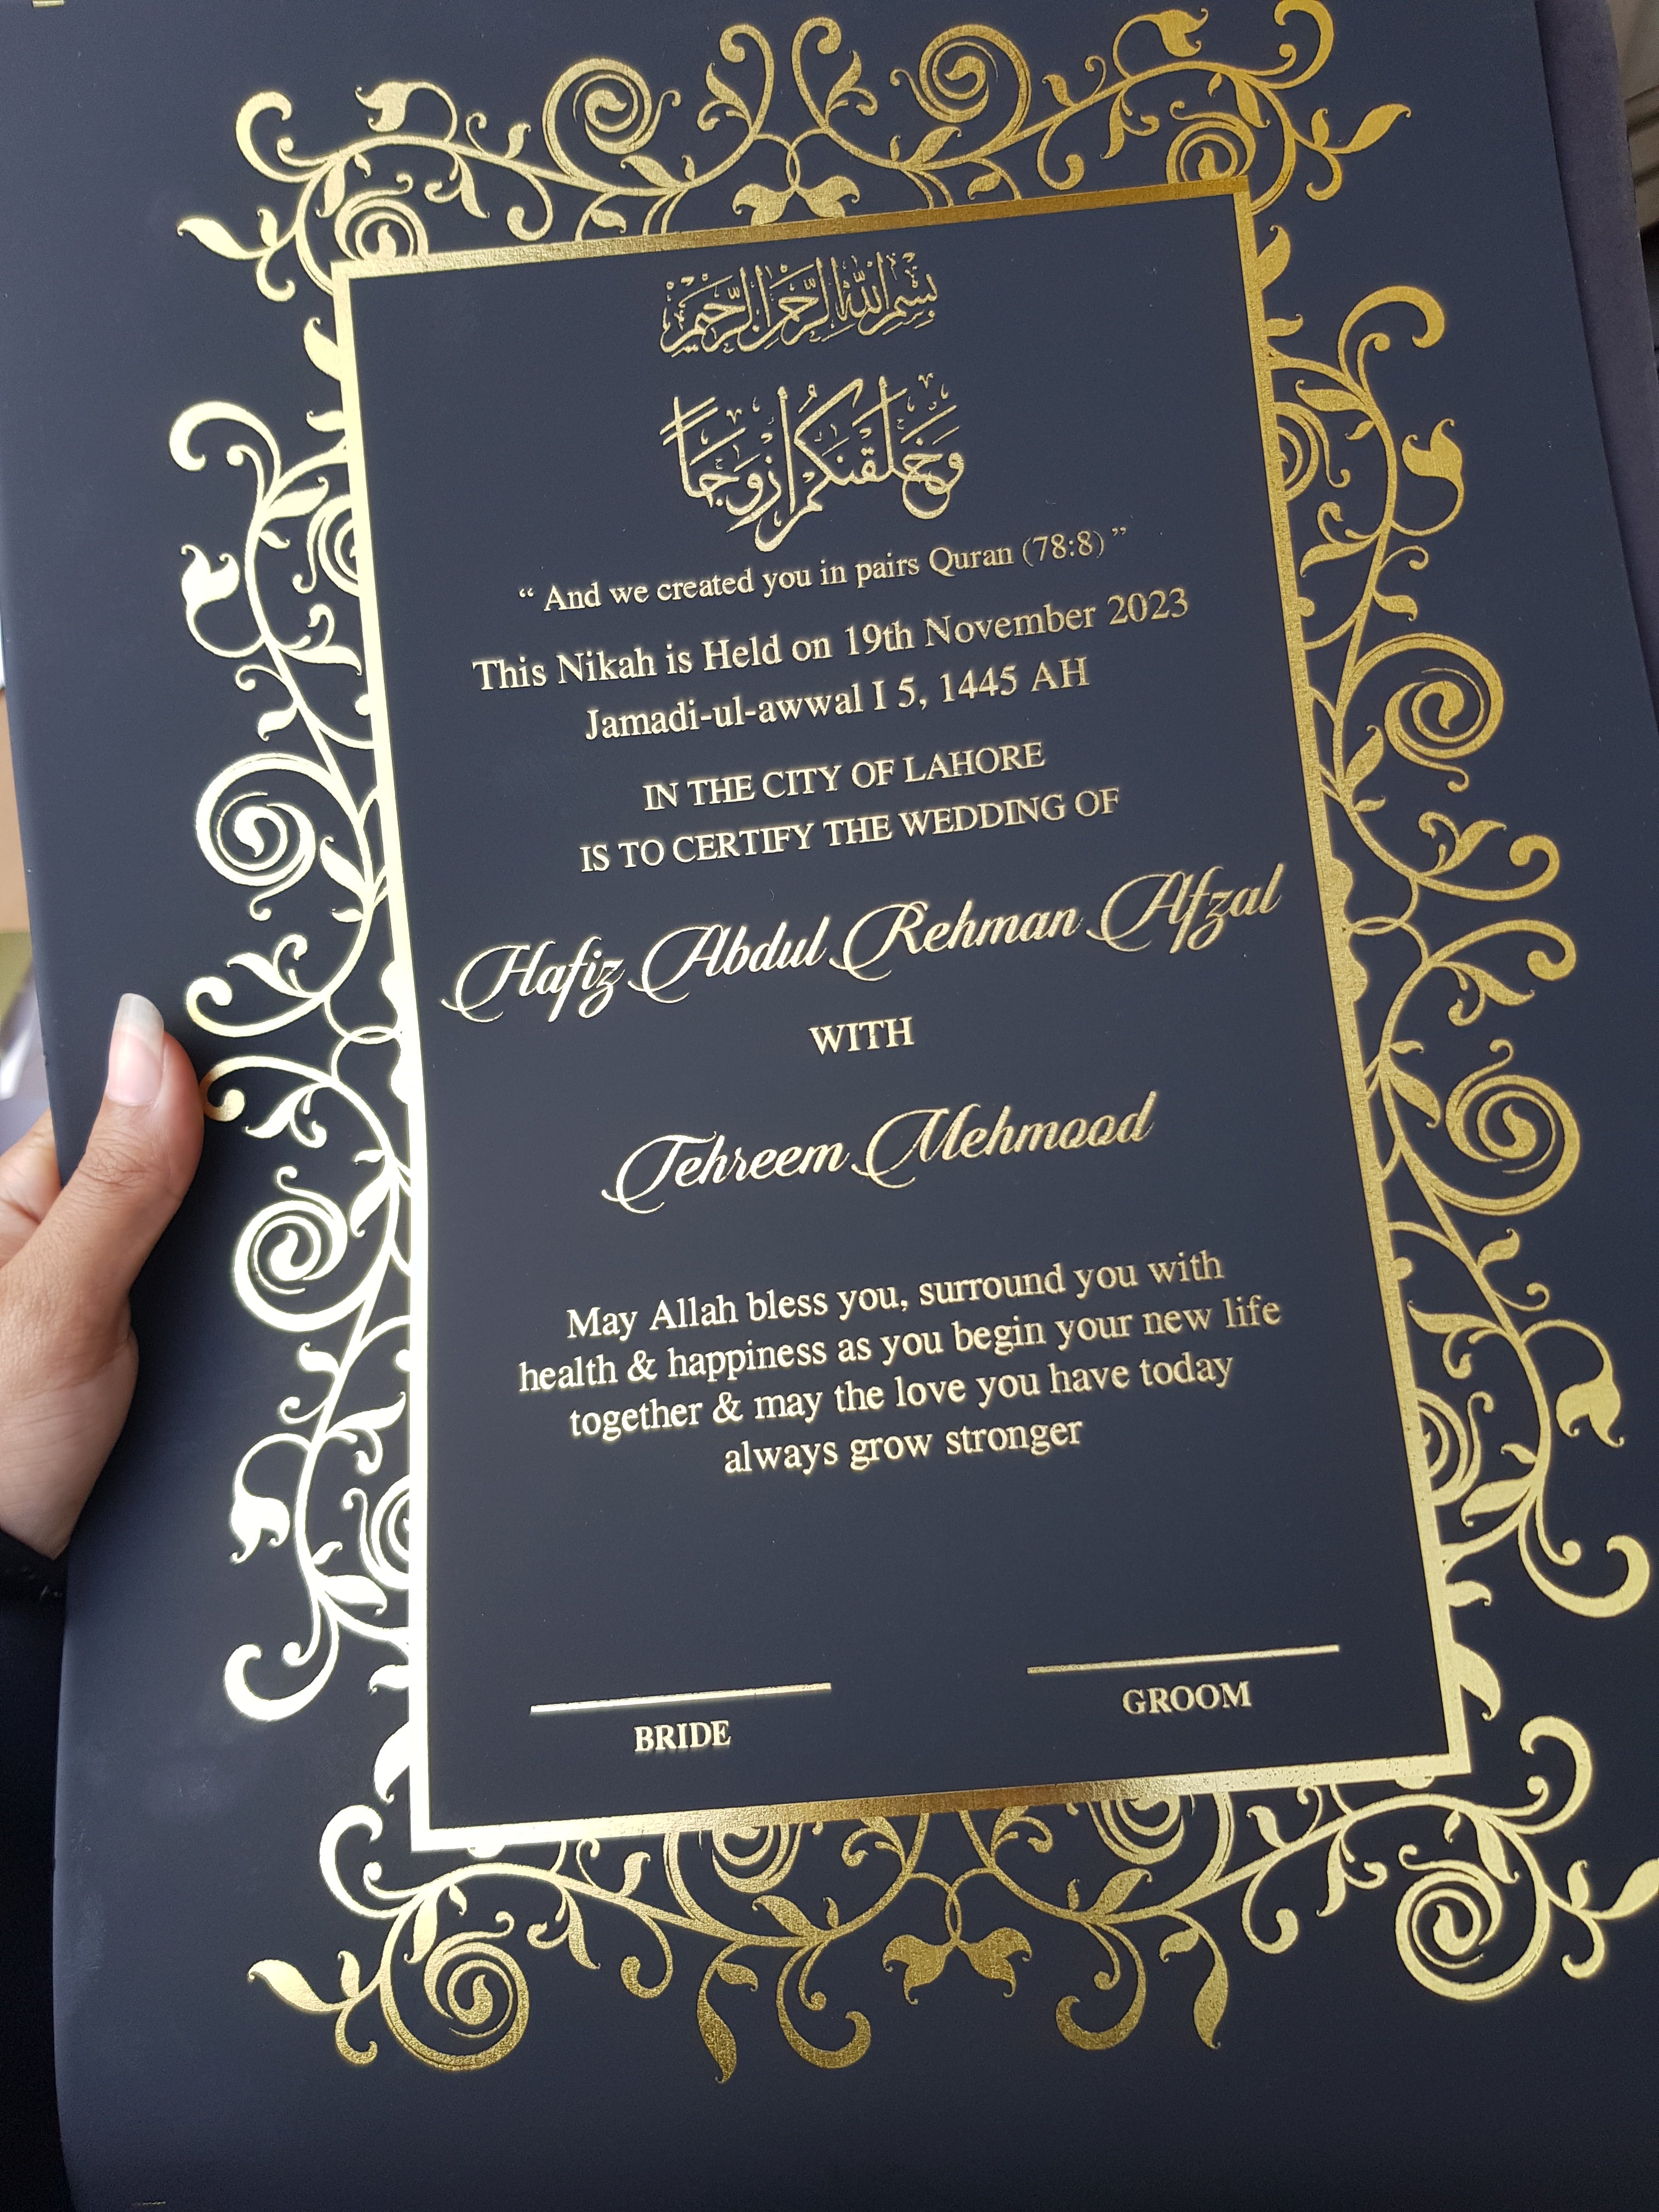 بِسْمِ اللهِ الرَّحْمٰنِ الرَّحِيْمِ
وَخَلَقْنٰكُمْ اَزْوَاجًا
“ And we created you in pairs Quran (78:8) ”
This Nikah is Held on 19th November 2023
Jamadi-ul-awwal I 5, 1445 AH
IN THE CITY OF LAHORE
IS TO CERTIFY THE WEDDING OF
Hafiz Abdul Rehman Afzal
WITH
Tehreem Mehmood
May Allah bless you, surround you with
health & happiness as you begin your new life
together & may the love you have today
always grow stronger
BRIDE
GROOM